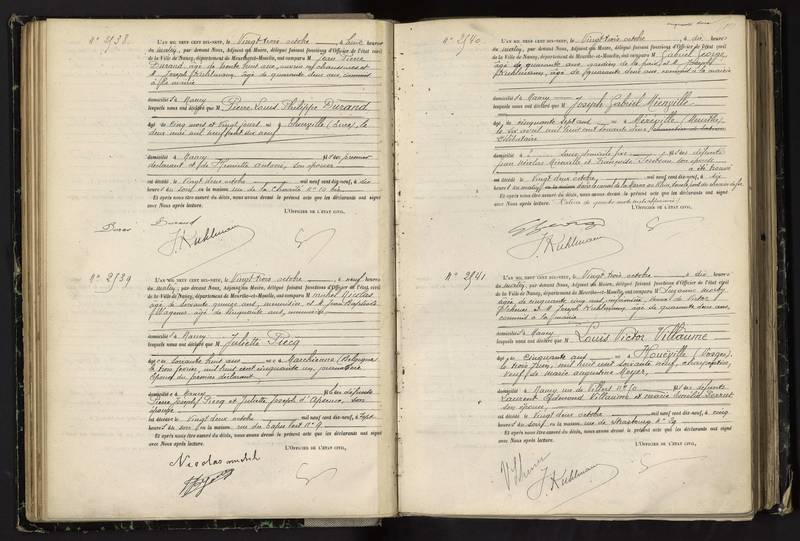 N° 2138.
L'AN MIL NEUF CENT DIX-NEUF, le Vingt-trois octobre, à huit heures
du matin, par devant Nous, Adjoint au Maire, délégué faisant fonctions d'Officier de l'état civil
de la Ville de Nancy, département de Meurthe-et-Moselle, ont comparu M. Jean Pierre
Durand, âgé de trente huit ans, ouvrier en chaussures et
M. Joseph Kuhlmann, âgé de quarante deux ans, commis
à la mairie
domiciliés à Nancy
lesquels nous ont déclaré que M. Pierre Louis Philippe Durand
âgé de cinq mois et vingt jours né à le
deux mai mil neuf cent dix neuf
domicilié à Nancy fils du premier
déclarant et de Henriette son épouse
est décédé le Vingt deux octobre mil neuf cent dix-neuf, à dix
heures du soir en la maison rue de la Charité N° 10 bis
Et après nous être assuré du décès, nous avons dressé le présent acte que les déclarants ont signé
avec Nous après lecture.
L'OFFICIER DE L'ÉTAT CIVIL,
Durand
J. Kuhlmann
N° 2139
L'AN MIL NEUF CENT DIX-NEUF, le Vingt-trois octobre, à neuf heures
du matin, par devant Nous, Adjoint au Maire, délégué faisant fonctions d'Officier de l'état civil
de la Ville de Nancy, département de Meurthe-et-Moselle, ont comparu M. Michel Nicolas
âgé de soixante quinze ans, menuisier et M. Jean Baptiste
âgé de cinquante ans,
domiciliés à Nancy
lesquels nous ont déclaré que M. Juliette Piecq
âgée de soixante huit ans née à Marchienne (Belgique)
le trois février, mil huit cent cinquante un,
épouse du premier déclarant,
domiciliée à Nancy fille des défunts
Pierre Joseph Piecq et Juliette Joseph d'Apsence, son
épouse
est décédée le Vingt deux octobre mil neuf cent dix-neuf, à sept
heures du soir en la maison rue du Tapis Vert N° 9
Et après nous être assuré du décès, nous avons dressé le présent acte que les déclarants ont signé
avec Nous après lecture.
L'OFFICIER DE L'ÉTAT CIVIL,
Nicolas michel
N° 2140
L'AN MIL NEUF CENT DIX-NEUF, le Vingt-trois octobre, à dix heures
du matin, par devant Nous, Adjoint au Maire, délégué faisant fonctions d'Officier de l'état civil
de la Ville de Nancy, département de Meurthe-et-Moselle, ont comparu M. Gabriel George
âgé de quarante ans, gardien de la paix, et M. Joseph
Kuhlmann, âgé de quarante deux ans commis à la mairie
domiciliés à Nancy
lesquels nous ont déclaré que M. Joseph Gabriel Méréville
âgé de cinquante sept ans né à Méréville (Meurthe)
le six avril mil huit cent soixante deux
célibataire
domicilié à ? fils des défunts
Jean Nicolas Méréville et Françoise son épouse
a été trouvé
est décédé le Vingt deux octobre, mil neuf cent dix-neuf, à dix
heures du matin dans le canal de la Marne au Rhin,
Et après nous être assuré du décès, nous avons dressé le présent acte que les déclarants ont signé
avec Nous après lecture.
L'OFFICIER DE L'ÉTAT CIVIL,
J. Kuhlmann
N° 2141
L'AN MIL NEUF CENT DIX-NEUF, le Vingt-trois octobre, à dix heures
du matin, par devant Nous, Adjoint au Maire, délégué faisant fonctions d'Officier de l'état civil
de la Ville de Nancy, département de Meurthe-et-Moselle, ont comparu M. Suzanne
âgée de cinquante cinq ans, infirmière, de Victor
et M. Joseph Kuhlmann, âgé de quarante deux ans,
commis à la mairie
domiciliés à Nancy
lesquels nous ont déclaré que M. Louis Victor Villaume
âgé de cinquante ans né à Houéville (Vosges),
le trois mil huit cent soixante neuf,
veuf de Marie Augustine Moyer,
domicilié à Nancy rue de Villers N° 10 fils des défunts
Laurent Edmond Villaume et Marie
son épouse,
est décédé le Vingt deux octobre mil neuf cent dix-neuf, à cinq
heures du soir en la maison rue de Strasbourg N° 29
Et après nous être assuré du décès, nous avons dressé le présent acte que les déclarants ont signé
avec Nous après lecture.
L'OFFICIER DE L'ÉTAT CIVIL,
J. Kuhlmann